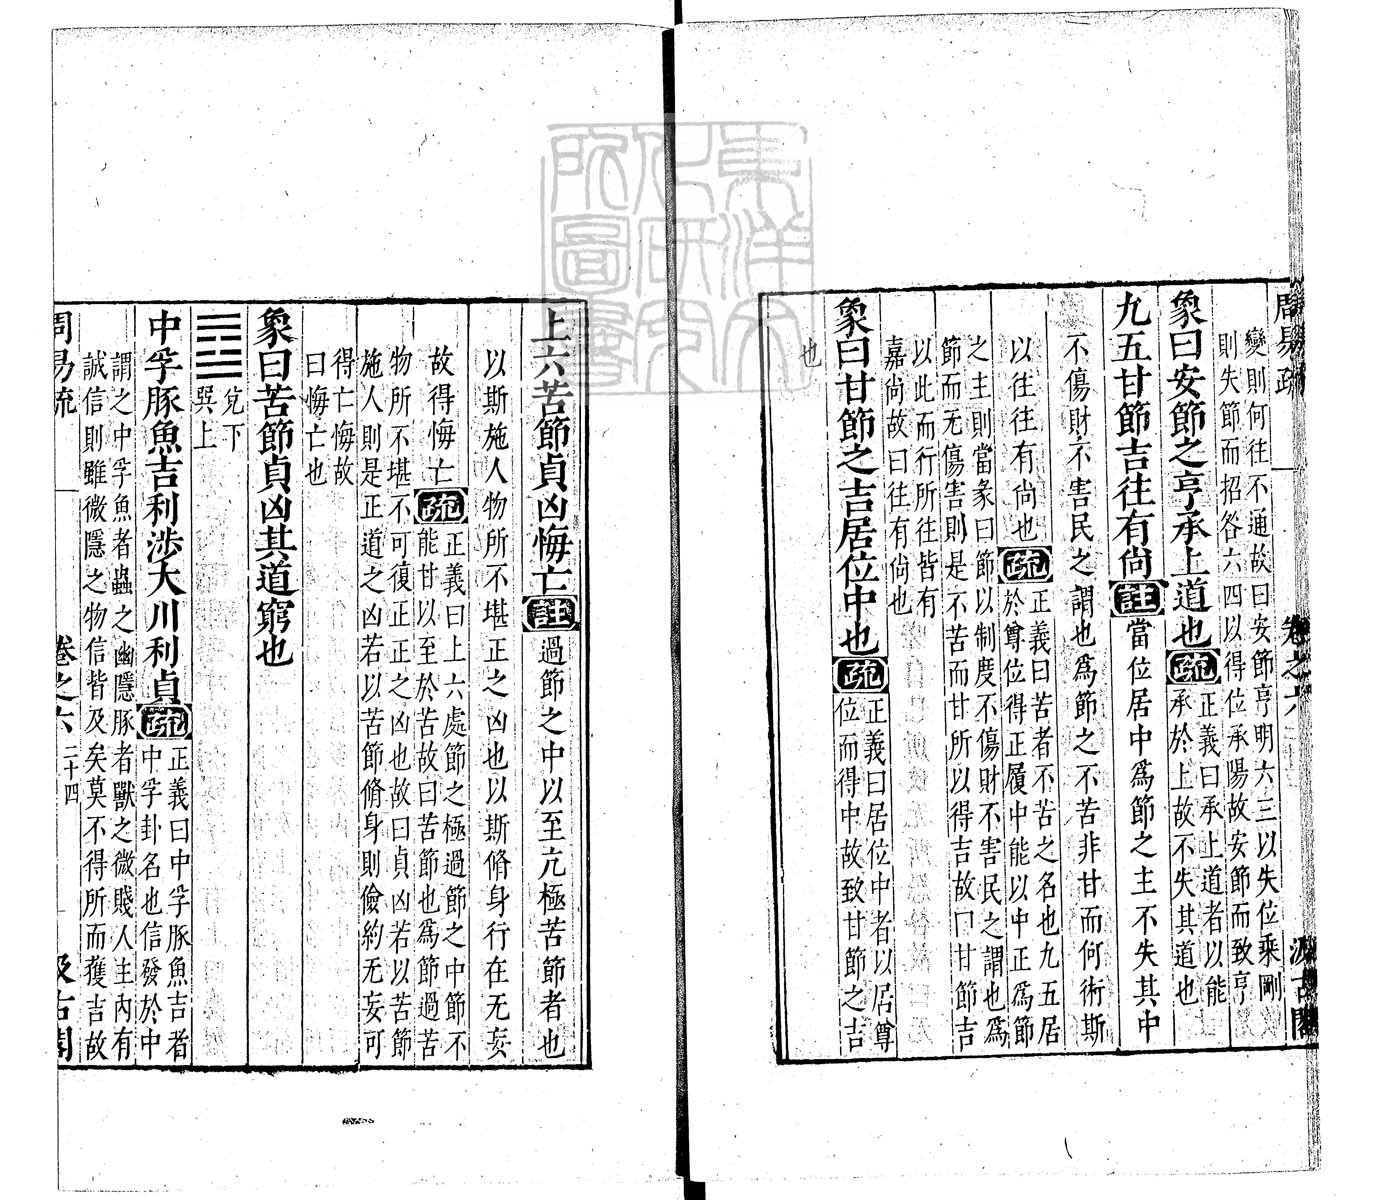 周易疏
卷之六
汲古閣
變則何往不通故曰安節亨明六三以失位乘剛
則失節而招咎六四以得位承陽故安節而致亨
象曰安節之亨承上道也疏
正義曰承上道者以能
承於上故不失其道也
九五甘節吉往有尚註當位居中爲節之主不失其中
不傷財不害民之謂也爲節之不苦非甘而何術斯
以往往有尚也疏
正義曰苦者不苦之名也九五居
於尊位得正履中能以中正爲節
之主則當彖曰節以制度不傷財不害民之謂也爲
節而无傷害則是不苦而甘所以得吉故曰甘節吉
以此而行所往皆有
嘉尚故曰往有尚也
象曰甘節之吉居位中也疏
正義曰居位中者以居尊
位而得中故致甘節之吉
也
上六苦節貞凶悔亡註過節之中以至亢極苦節者也
以斯施人物所不堪正之凶也以斯脩身行在无妄
故得悔亡疏
正義曰上六處節之極過節之中節不
能甘以至於苦故曰苦節也爲節過苦
物所不堪不可復正正之凶也故曰貞凶若以苦節
施人則是正道之凶若以苦節脩身則儉約无妄可
得亡悔故
曰悔亡也
象曰苦節貞凶其道窮也
兌下
巽上
中孚豚魚吉利涉大川利貞疏
正義曰中孚豚魚吉者
中孚卦名也信發於中
謂之中孚魚者蟲之幽隱豚者獸之微賤人主內有
誠信則雖微隱之物信皆及矣莫不得所而獲吉故
周易疏
卷之六
二十四
汲古閣
東洋文化研究所圖書